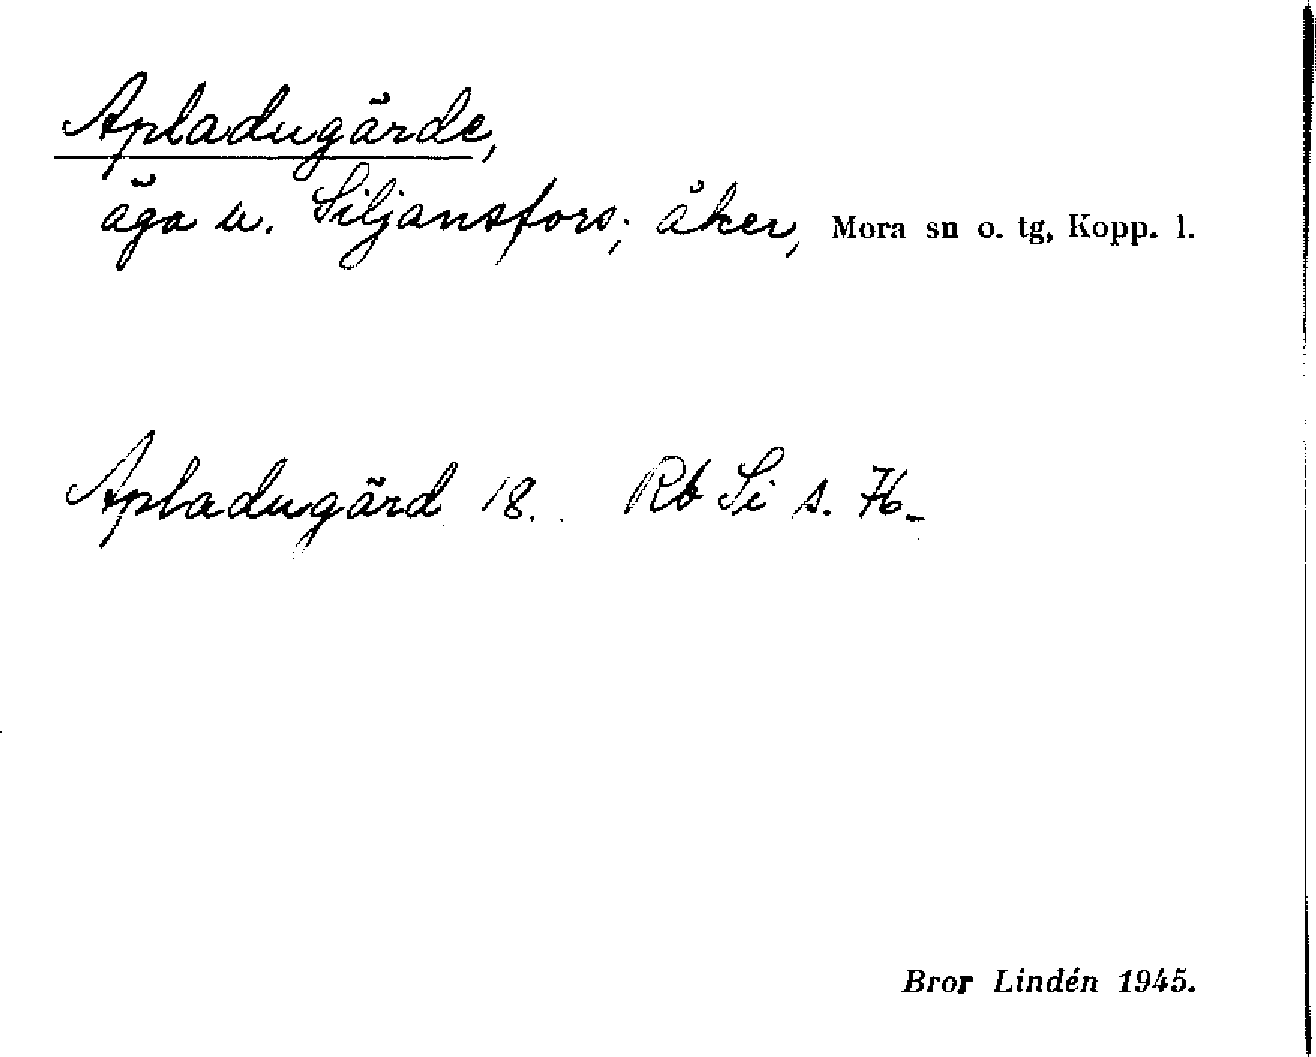 Apladugärde,
äga u. Siljansfors; åker, Mora sn o. tg, Kopp. l.
Apladugärd 18. Rb Si s. 76.
Bror Lindén 1945.